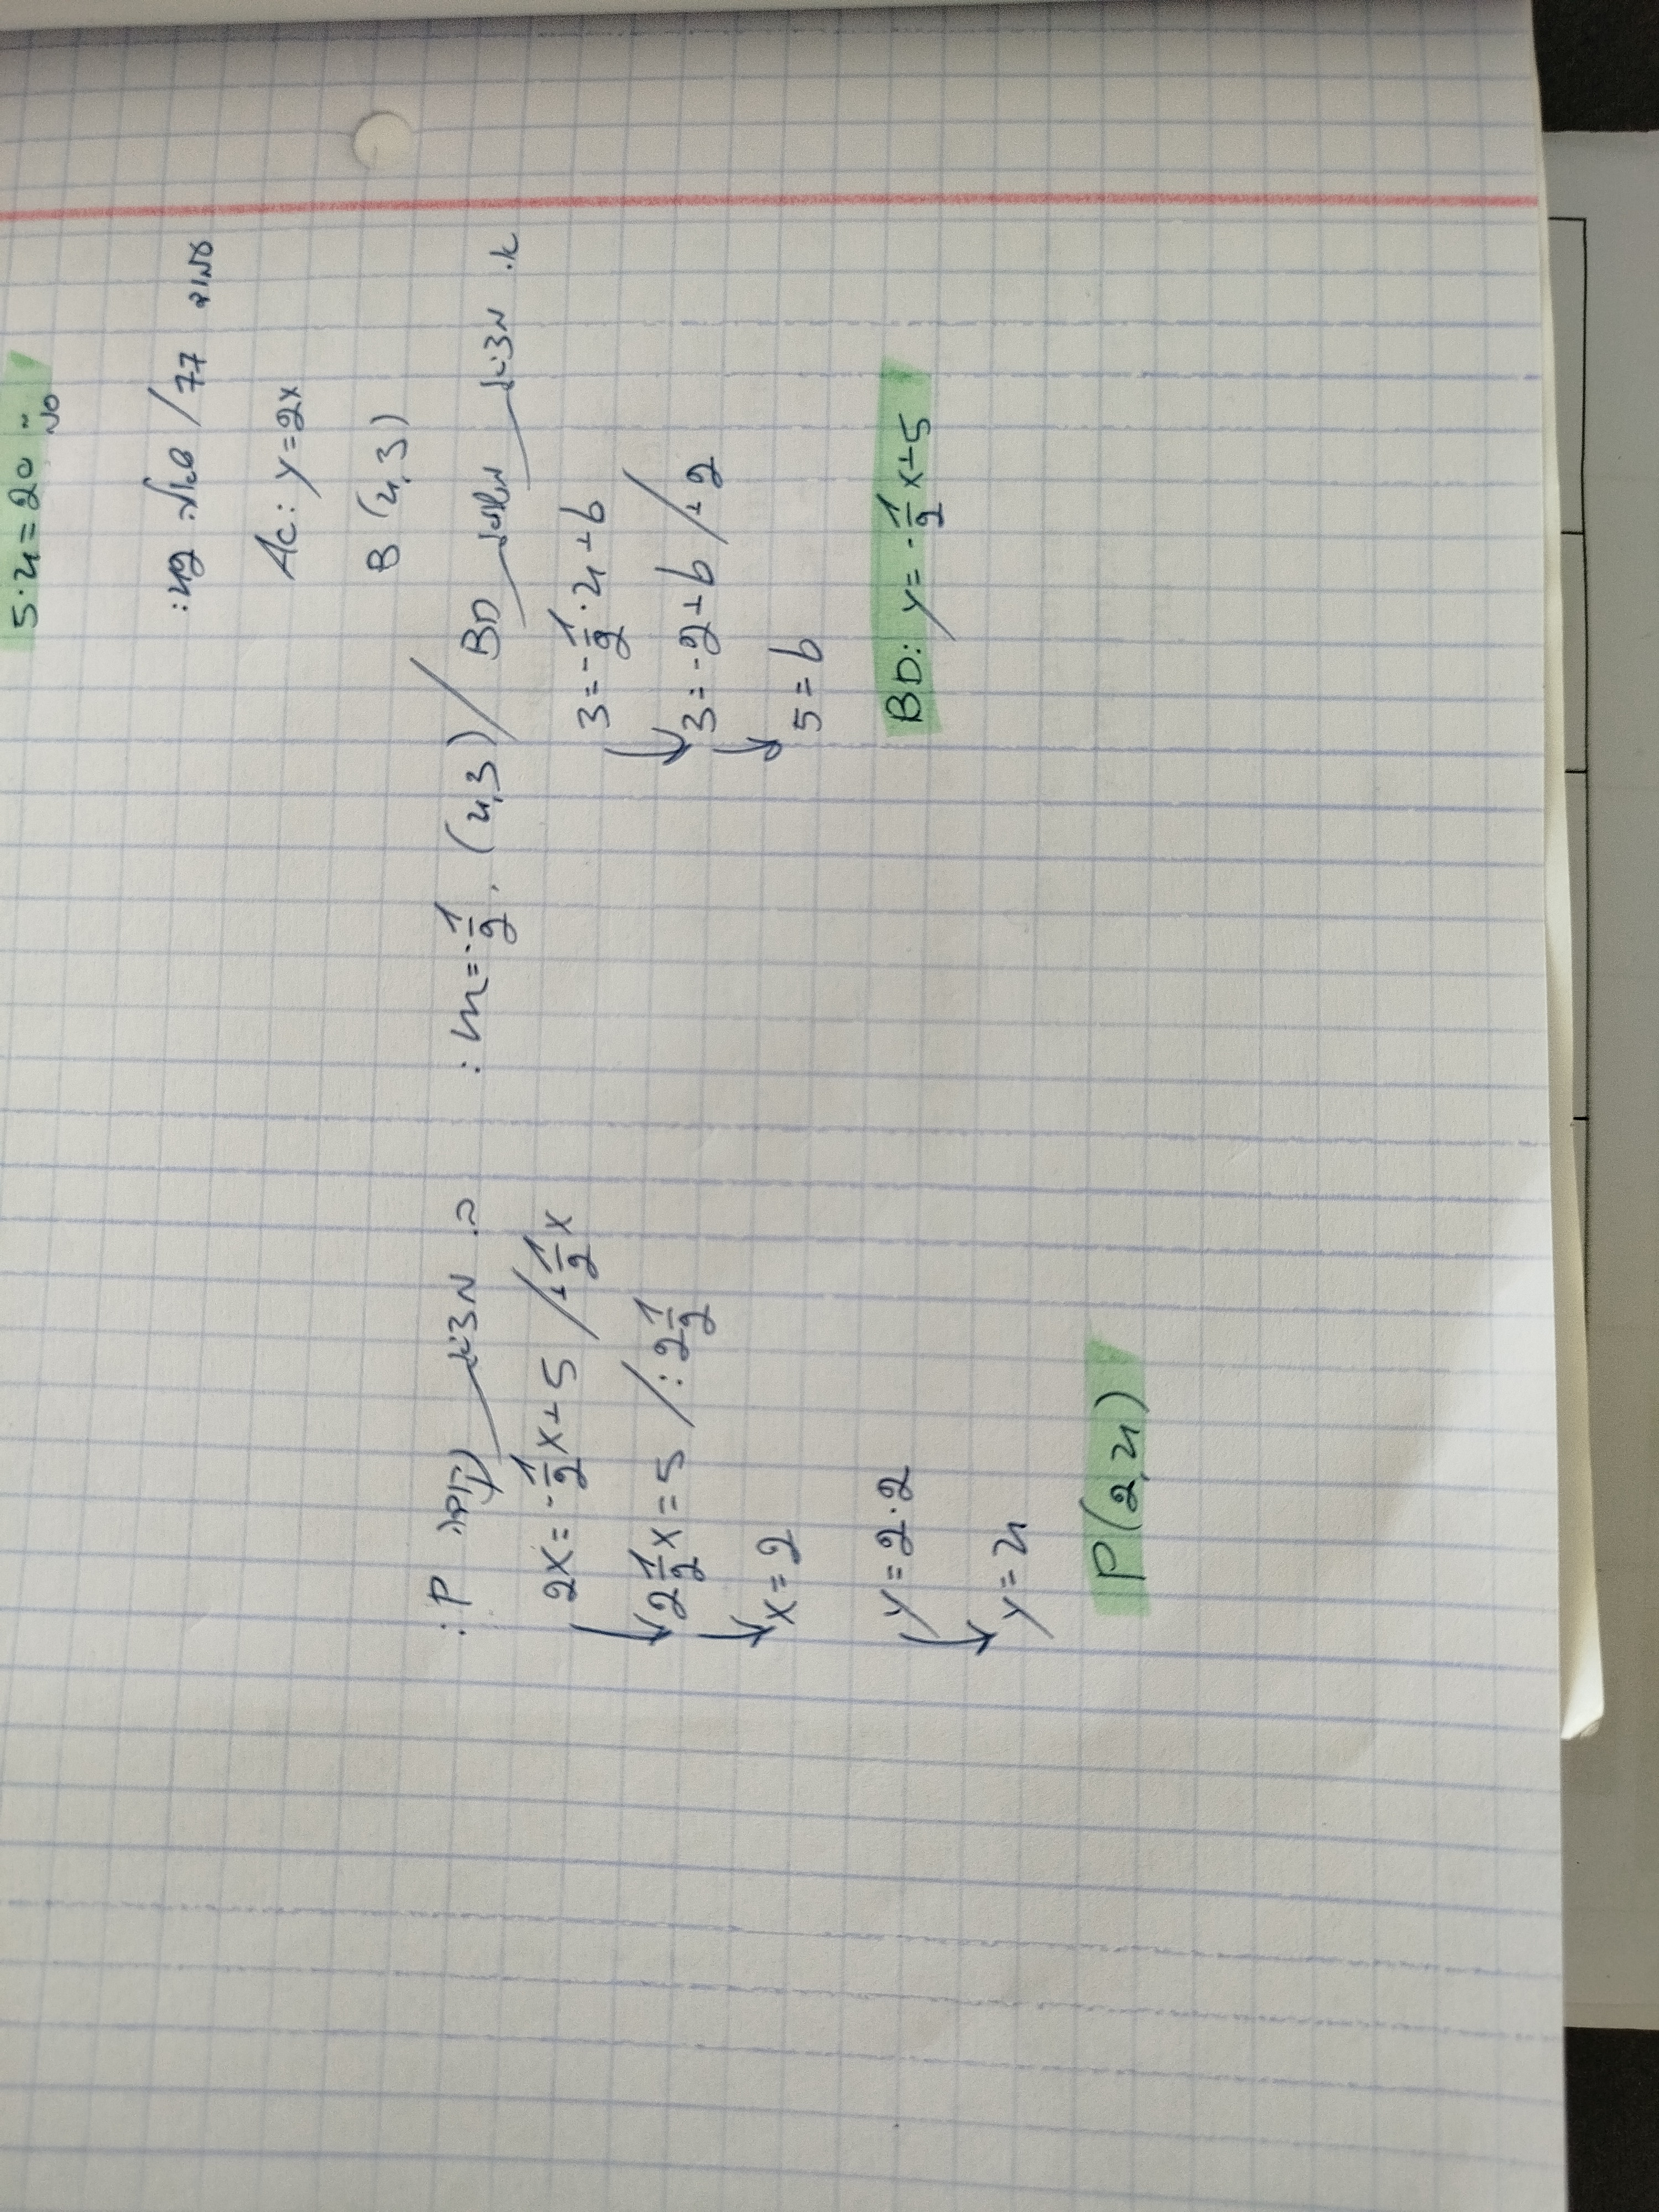 5·4=20 סמ"ר
עמוד 77 / שאלה 42:
AC: y=2x
B (4,3)
א. נמצא משוואת BD / (4,3), m=-1/2:
3=-1/2·4+b
3=-2+b /+2
5=b
BD: y=-1/2x+5
ב. נמצא נקודה P:
2x=-1/2x+5 /+1/2x
2 1/2x=5 /:2 1/2
x=2
y=2·2
y=4
P(2,4)